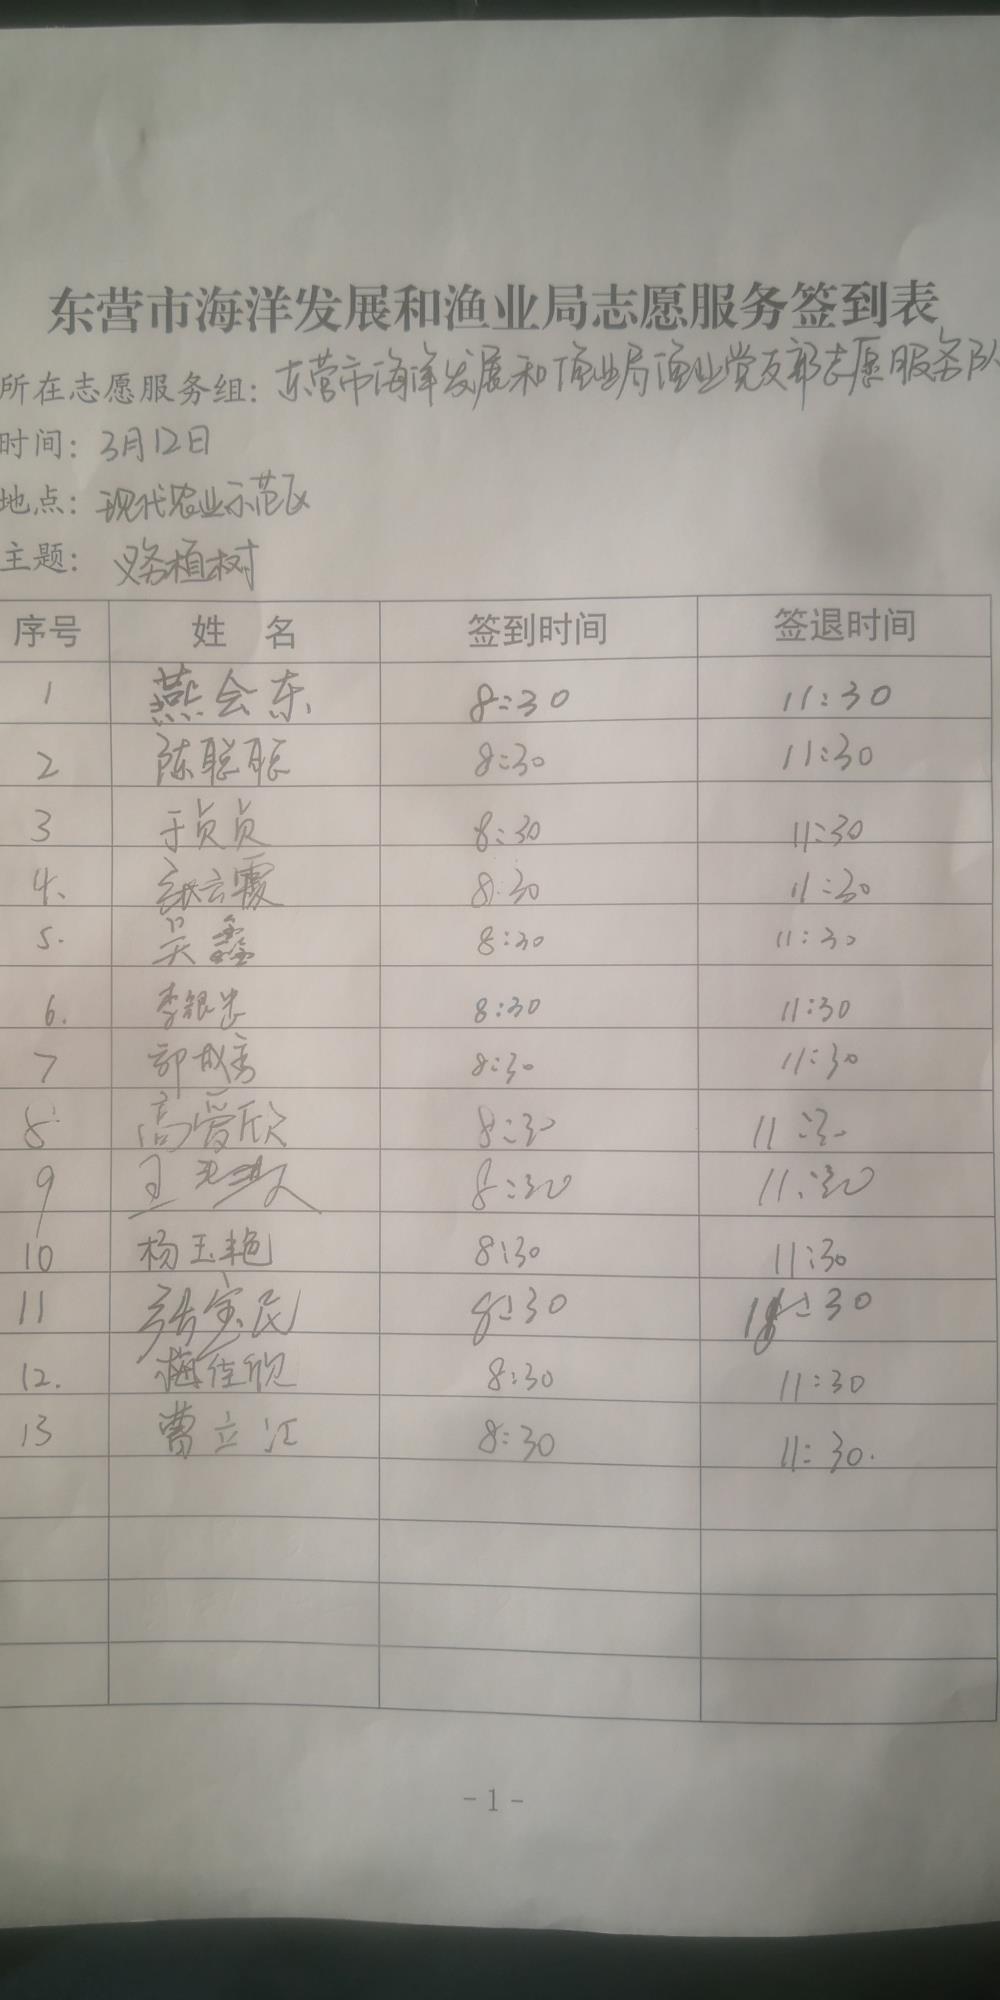 东营市海洋发展和渔业局志愿服务签到表
所在志愿服务组：东营市海洋发展和渔业局渔业党支部志愿服务队
时间：3月12日
地点：现代农业示范区
主题：义务植树
序号 姓 名 签到时间 签退时间
1 燕会东 8:30 11:30
2 陈聪聪 8:30 11:30
3 于贞贞 8:30 11:30
4. 张云霞 8:30 11:30
5. 吴鑫 8:30 11:30
6. 李银忠 8:30 11:30
7 郭成秀 8:30 11:30
8. 高爱欣 8:30 11:30
9 王 8:30 11:30
10 杨玉艳 8:30 11:30
11 张宝民 8:30 :30
12. 梅佳悦 8:30 11:30
13 曹立江 8:30 11:30.
-1-